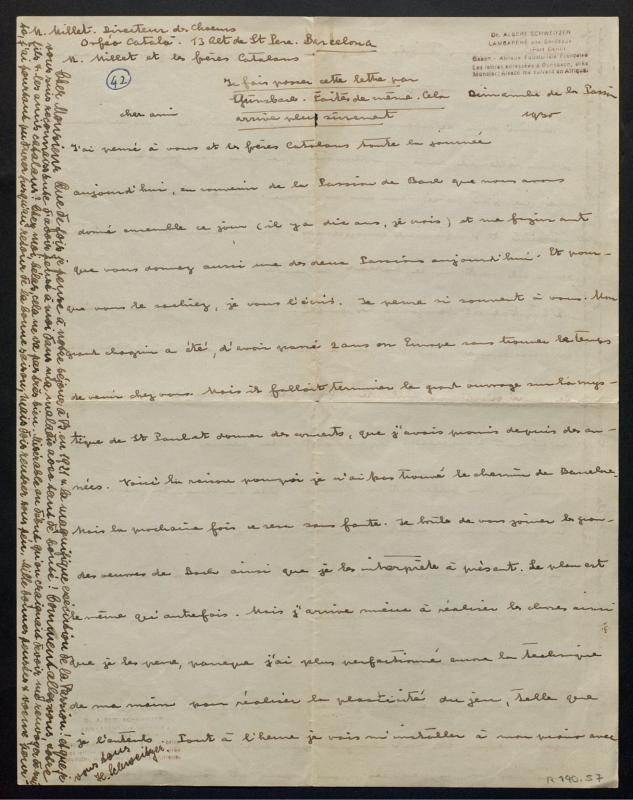 M. Millet. Directeur des Choeurs
Orféo Català. 13 Alt de St Pere. Barcelona
M. Millet et les frères Catalans
42
Dr. ALBERT SCHWEITZER
LAMBARÉNÉ par Bordeaux
(Port Gentil)
Gabon - Afrique Equatoriale Française
Les lettres adressées à Gunsbach, près
Munster, Alsace me suivent en Afrique
Je fais passer cette lettre par
Günsbach. Faites de même. Cela
arrive plus sûrement
Dimanche de la Passion
1930
cher ami
J'ai pensé à vous et les frères Catalans toute la journée
aujourd'hui, en souvenir de la Passion de Bach que nous avons
donné ensemble ce jour (il y a dix ans, je crois) et me
que vous donnez aussi une des deux Passions aujourd'hui. Et pour-
que vous le sachiez, je vous l'écris. Je pense si souvent à vous. Mon
grand chagrin a été, d'avoir passé 2 ans en Europe sans trouver le temps
de venir chez vous. Mais il fallait terminer le grand ouvrage sur la mys-
tique de St Paul et donner des concerts, que j'avais promis depuis des an-
nées. Voici la raison pourquoi je n'ai pas trouvé le chemin de Barcelone.
Mais la prochaine fois ce sera sans faute. Je brûle de vous jouer les gran-
des oeuvres de Bach ainsi que je les interprète à présent. Le plan est
le même qu'autrefois. Mais j'arrive mieux à réaliser les choses ainsi
que je les pense, parceque j'ai plus perfectionné encore la technique
de ma main pour réaliser la plasticité du jeu, telle que
je l'entends. Tout à l'heure je vais m'installer à mon piano avec
Cher Monsieur Que de fois je pense à notre séjour à B en 1921 & la magnifique exécution de la Passion! et que je
vous suis reconnaissante d'avoir pensé à moi dans ma maladie avec tant de bonté! Comment allez vous, votre
fils & les amis catalans? Chez moi, hélas, cela ne va pas très bien.
jusqu'au retour de la bonne saison, mais dois rentrer sous peu. Mille bonnes pensées à vous & pour
vous tous
H. Schweitzer.
R 190.57